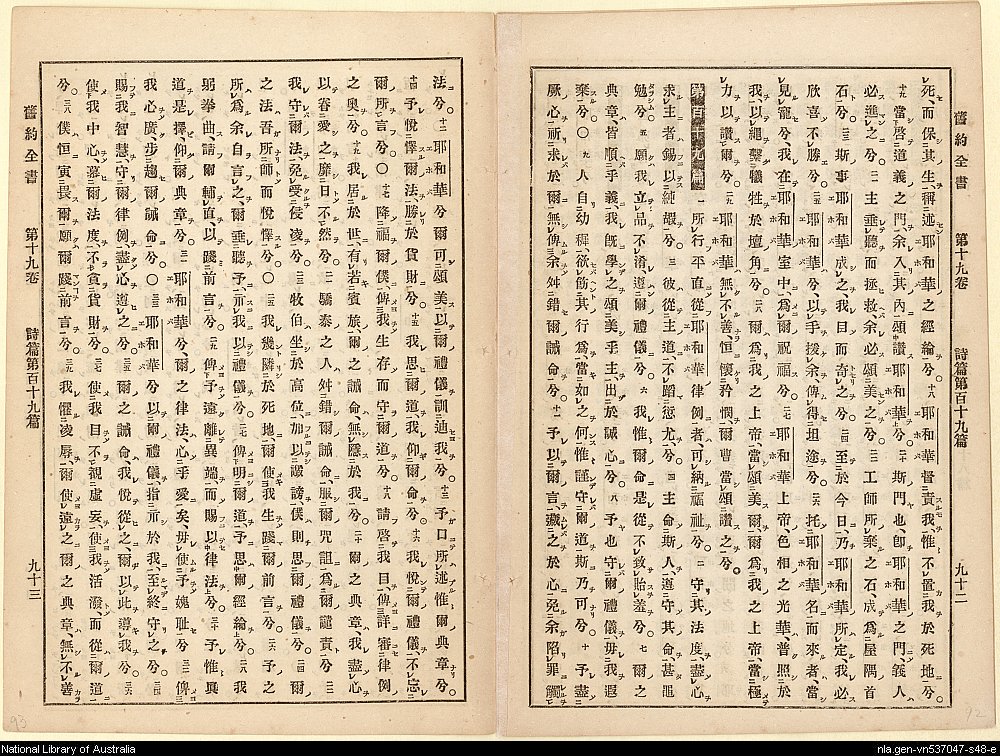 舊約全書　第十九卷　詩篇第百十九篇　九十二
死、而保其生、稱述耶和華之經綸兮。十八耶和華督責我、惟不置我於死地兮。
十九當啓道義之門、余入其內、頌讚耶和華兮。二十斯門也、卽耶和華之門、義人
必進之兮。二一主垂聽而拯救余、余必頌美之兮。二二工師所棄之石、成爲屋隅首
石兮。二三斯事耶和華成之、我目而奇之兮。二四至於今日、乃耶和華所定、我必
欣喜不勝兮。二五耶和華兮、以手援余、俾得坦途兮。二六托耶和華名而來者、當
見寵兮、我在耶和華室中、爲爾祝福兮。二七耶和華上帝、色相之光華、普照於
我、以繩繫犧牲於壇角兮。二八爾爲我之上帝、當頌美爾、爾爲我之上帝、當極
力以讚爾兮。二九耶和華無不善、恒懷矜憫、爾曹當頌讚之兮。
第百十九篇　一所行平直、從耶和華律例者、可納福祉兮。二守其法度、盡心
求主者、錫以純嘏兮。三彼從主道、不蹈愆尤兮。四主命斯人、遵守其命、甚黽
勉兮。五願我立品不淆、遵爾禮儀兮。六我惟爾命是從、不致貽羞兮。七爾之
典章、皆順乎義、我既學之、頌美乎主、出於誠心兮。八予也守爾禮儀、毋我遐
棄兮。〇九人自幼穉、欲飭其行爲、當如之何、惟謹守爾道、斯乃可兮。十予盡
厥心、祈求於爾、無俾余舛錯誡命兮。十一予以爾言、藏之於心、免余陷罪
法兮。十二耶和華兮、爾可頌美、以爾禮儀訓迪我兮。十三予口所述、惟爾典章兮。
十四予悅懌爾法、勝於貨財兮。十五我思爾道、我仰爾命兮。十六我悅爾禮儀、不忘
爾所言兮。〇十七降福爾僕、俾我生存、而守爾道兮。十八請啓我目、俾詳審律例
之奧兮。十九我居於世、有若賓旅、爾之誡命、無隱於我兮。二十爾之典章、我盡心
以眷愛之、靡日不然兮。二一驕泰之人、舛錯爾誡命、服爾咒詛、爲爾譴責兮。二二
我守爾法、免受侵凌兮。二三牧伯坐於高位、加以謗讟、僕則思爾禮儀兮。二四爾
之法、吾所師而悅懌兮。〇二五我幾隣於死地、爾使我生、踐爾前言兮。二六予之
所爲、余自言之、爾垂聽予、示我以禮儀兮。二七俾明爾道、予思爾經綸兮。二八我
躬拳曲、請爾輔直、以踐前言兮。二九俾予遠離異端、而賜以律法兮。三十予惟眞
道是擇、仰爾典章兮。三一耶和華兮、爾之律法、心乎愛矣、毋使予媿耻兮。三二俾
我心廣、步趨爾誡命兮。〇三三耶和華兮、以爾禮儀、指示於我、至終守之兮。三四
賜我智慧、守爾律例、盡心遵之兮。三五爾之誡命、我悅從之、爾以此導我兮。三六
使我中心、潛爾法度、不貪貨財兮。三七使我目不視虛妄、使我活潑、而從爾道
兮。三八僕恒寅畏爾、願爾踐前言兮。三九我懼凌辱、爾使遠之、爾之典章、無不善
舊約全書　第十九卷　詩篇第百十九篇　九十三
93
92
National Library of Australia
nla.gen-vn537047-s48-e